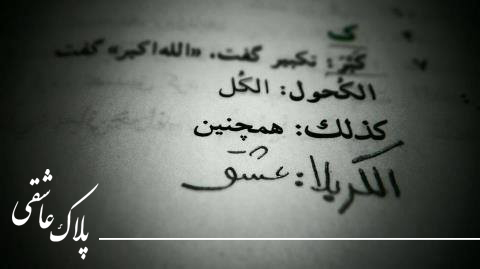 ک
کَبَّرَ: تکبیر گفت، «الله‌اکبر» گفت
الکُحول: الکُل
کذلك: همچنین
الکربلا: عشق
پلاک عاشقی